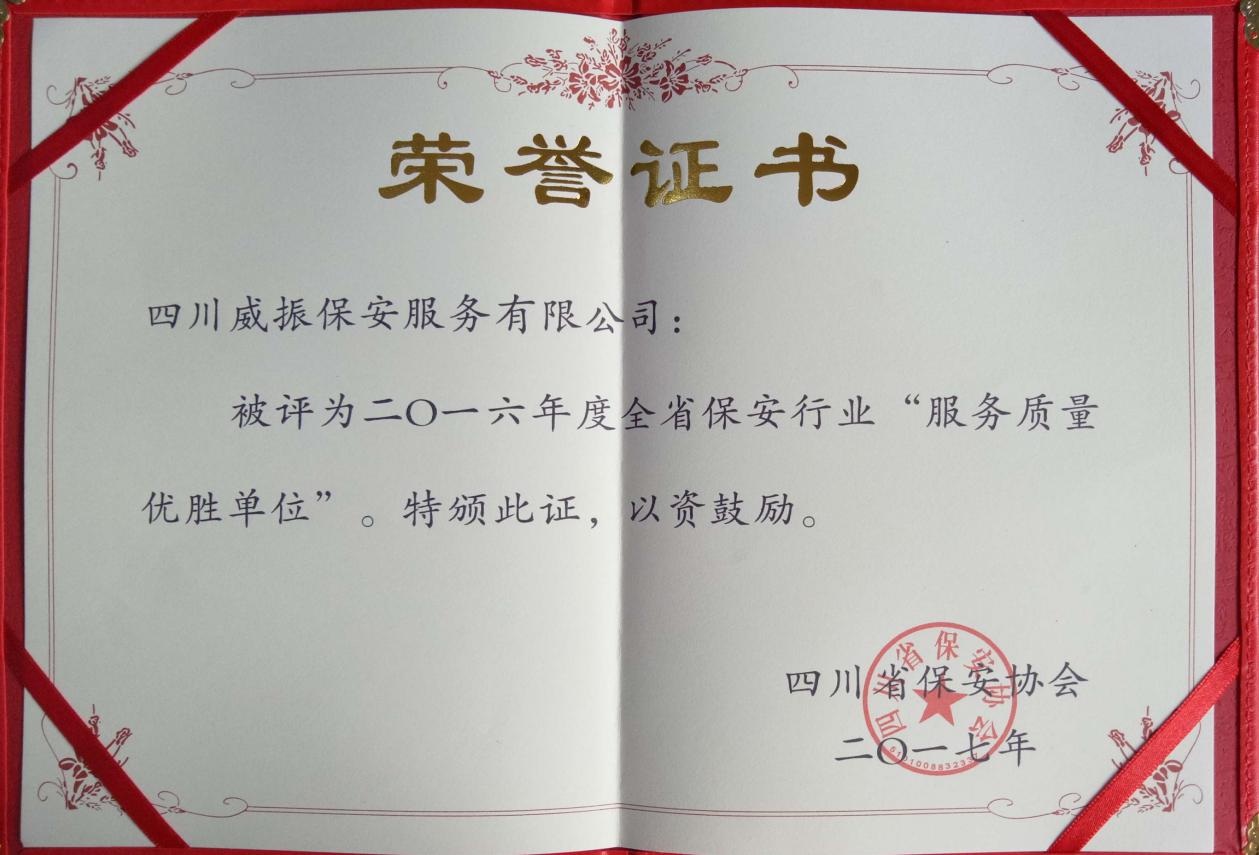 荣誉证书
四川威振保安服务有限公司：
被评为二〇一六年度全省保安行业“服务质量
优胜单位”。特颁此证，以资鼓励。
四川省保安协会
二〇一七年
四川省保安协会